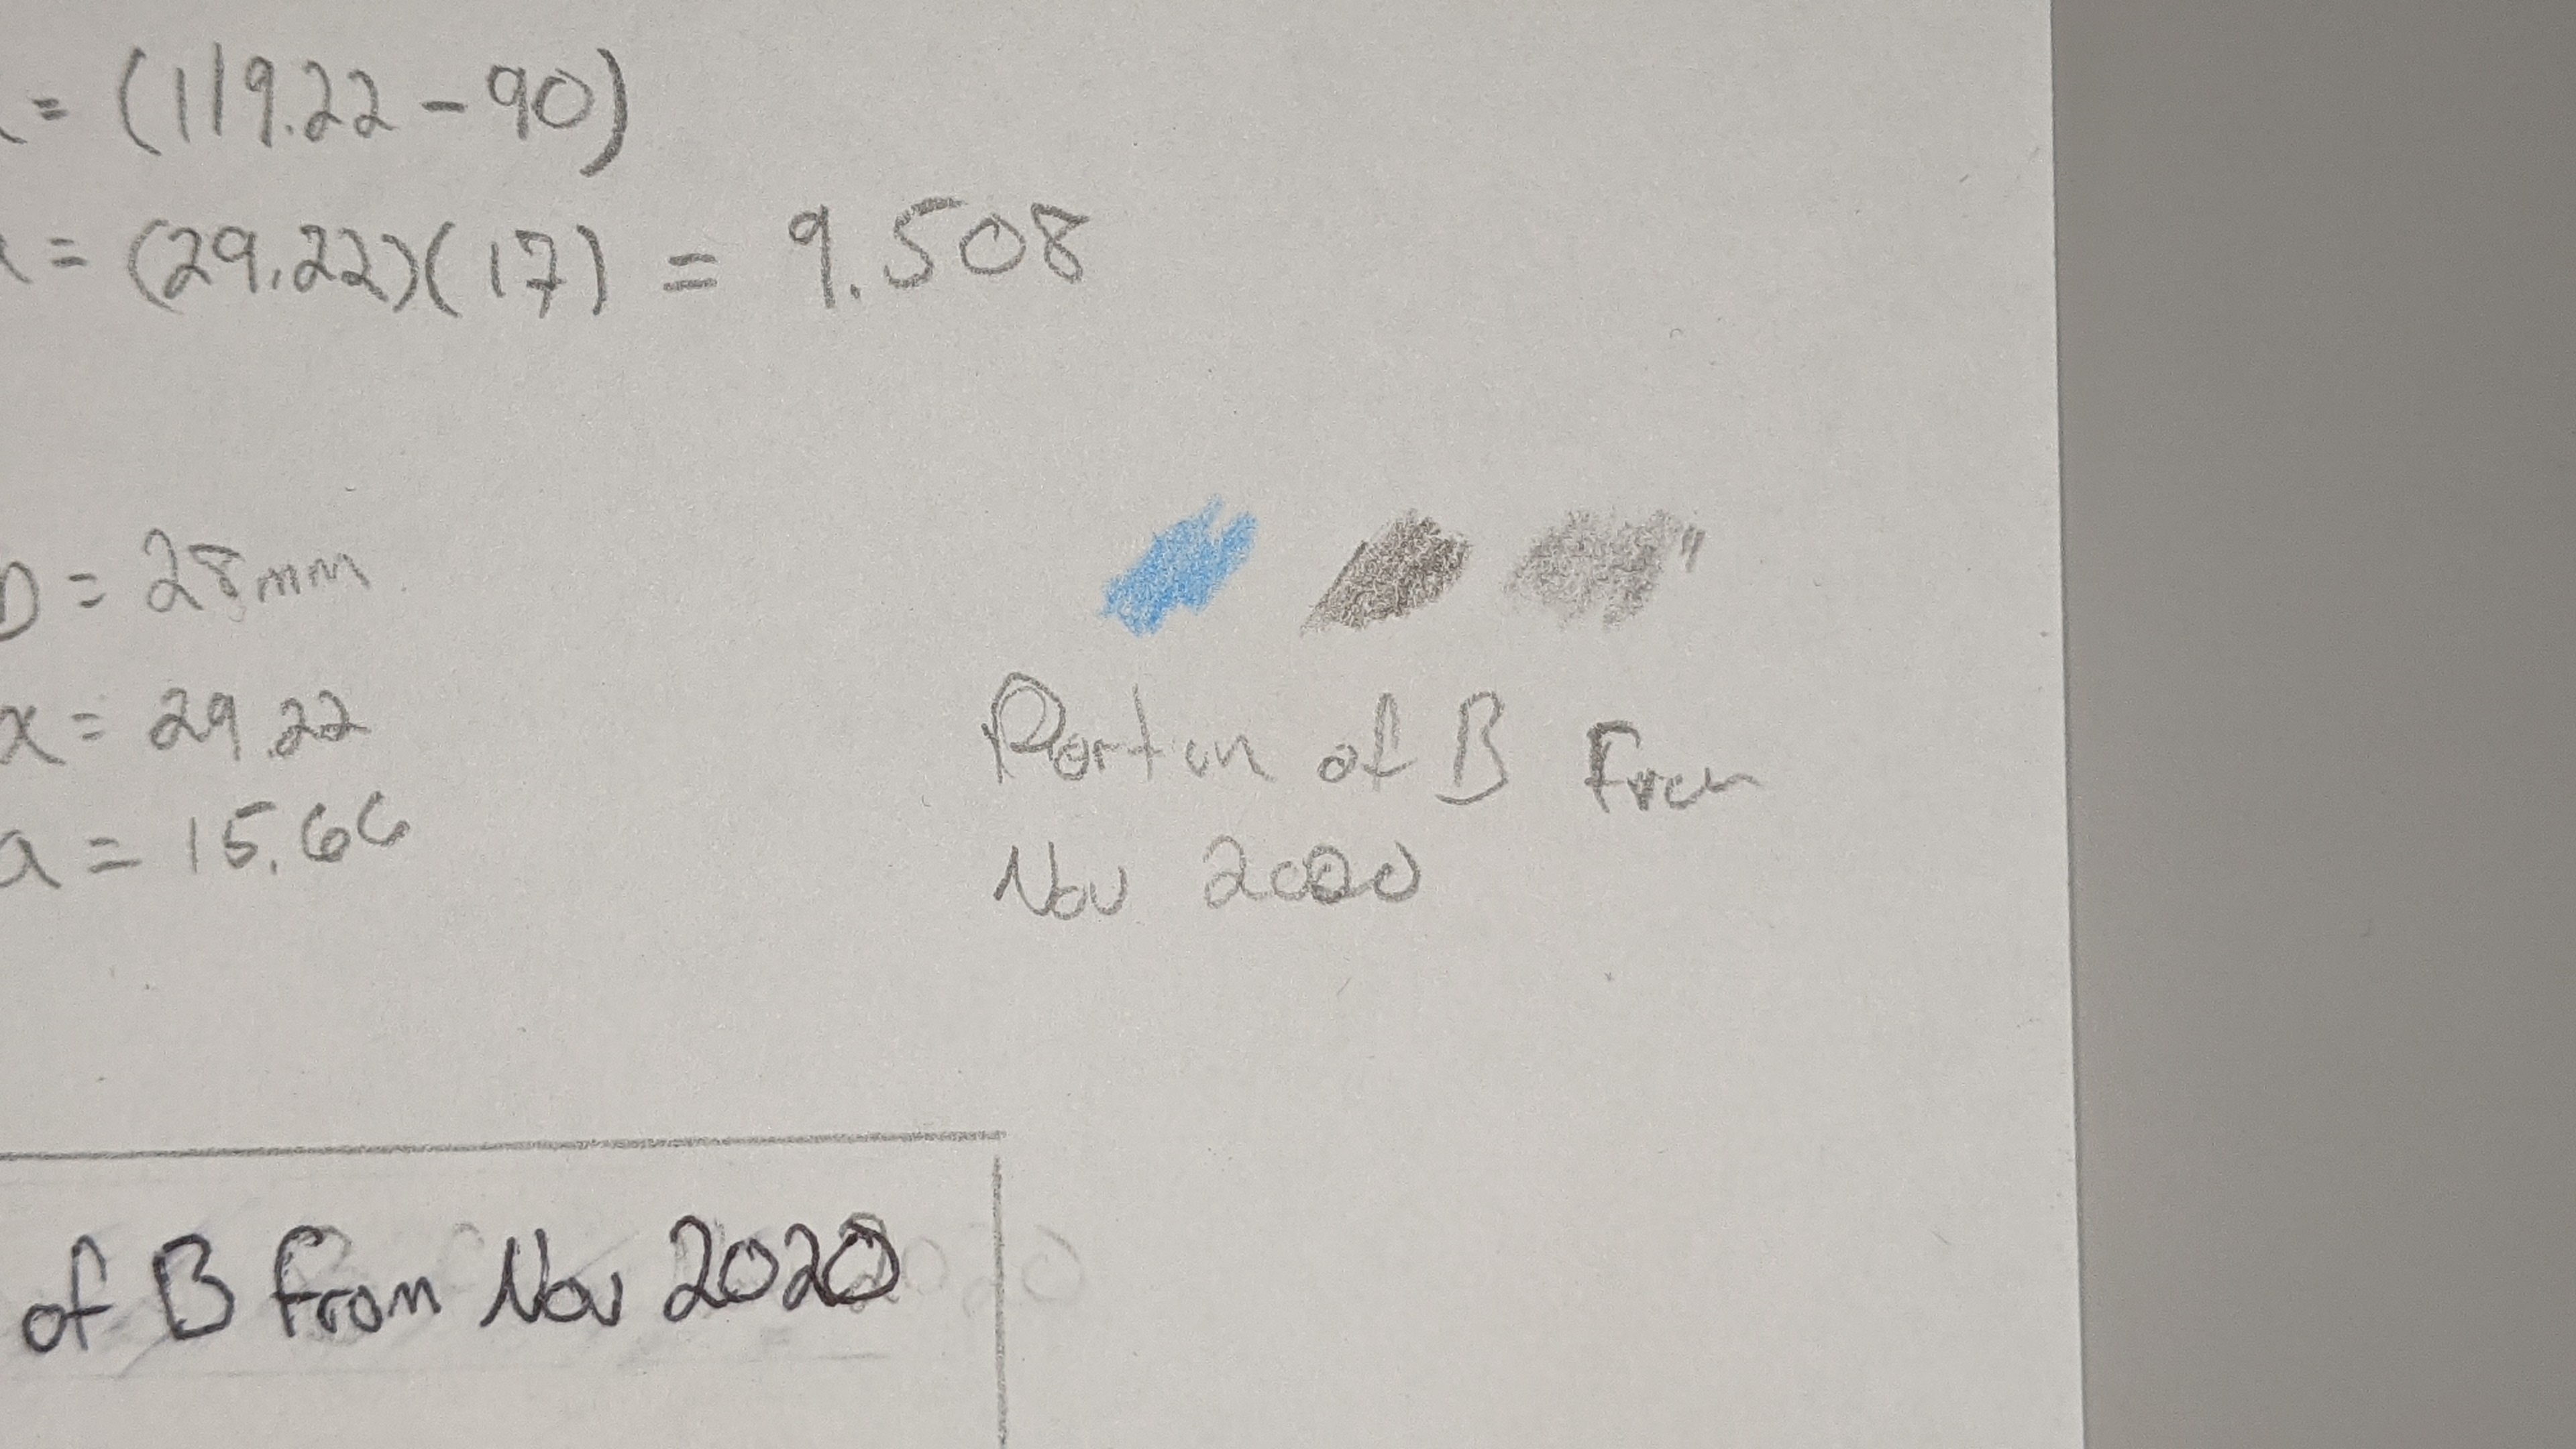 = (119.22 - 90)
= (29.22)(17) = 9.508
D = 28mm
x = 29.22
a = 15.66
Portion of B From
Nov 2020
of B From Nov 2020